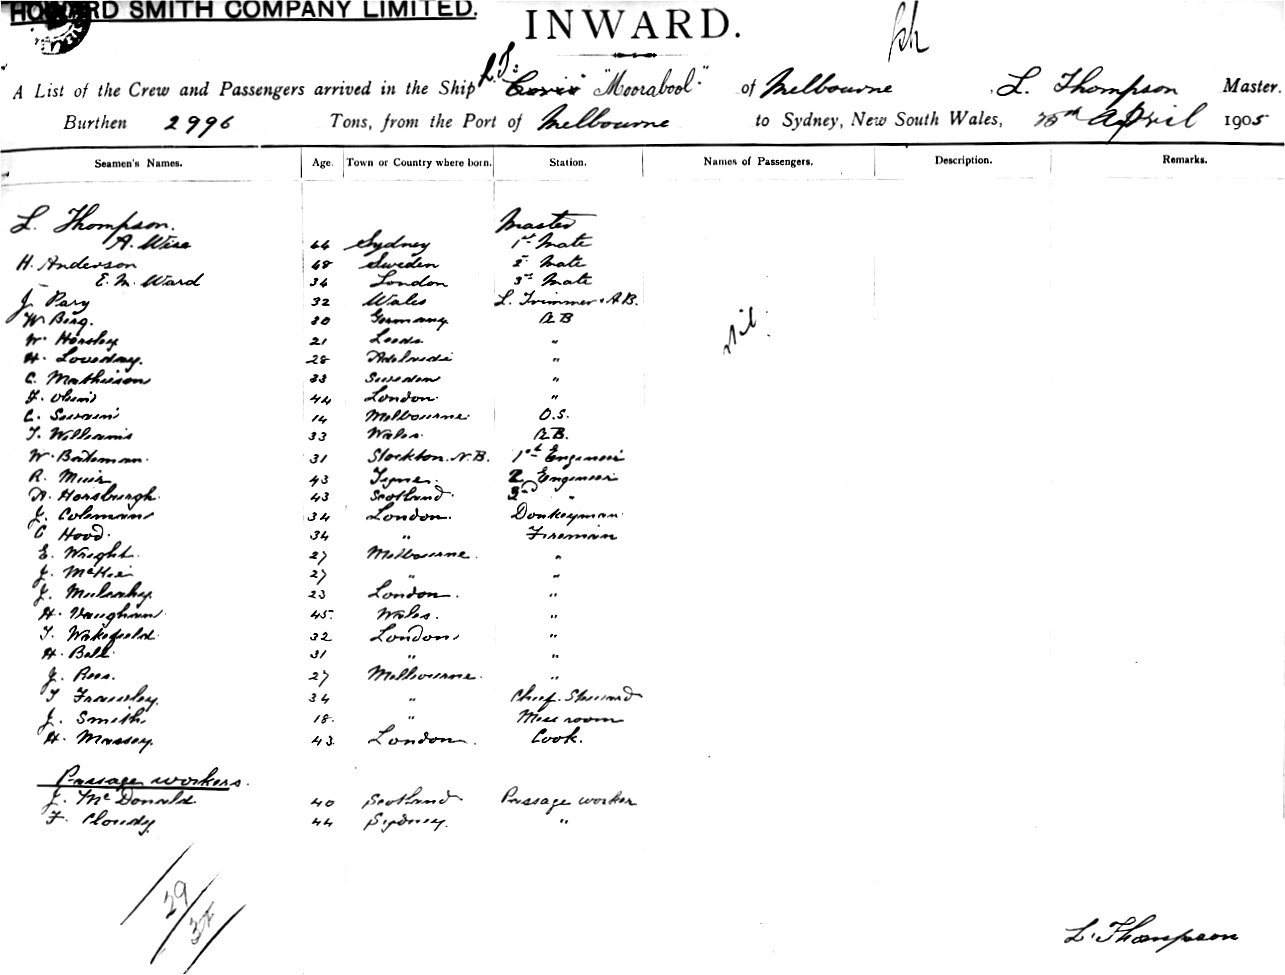 HOWARD SMITH COMPANY LIMITED.
INWARD.
A List of the Crew and Passengers arrived in the Ship "Moorabool" of Melbourne, L. Thompson Master.
Burthen 2996 Tons, from the Port of Melbourne to Sydney, New South Wales, April 1905
Seamen's Names. Age. Town or Country where born. Station. Names of Passengers. Description. Remarks.
L. Thompson. Master
A. Wise 44 Sydney 1st Mate
H. Anderson 48 Sweden 2 Mate
E. M. Ward 34 London 3rd Mate
J. Pary 32 Wales L. Trimmer & A.B.
W Berg. 30 Germany A B
W. Horsley 21 Leeds "
H. Loveday. 28 Adelaide "
C. Mathieson 33 Sweden "
44 London "
C. 14 Melbourne O.S.
T. Williams 33 Wales. A.B.
W. Bateman. 31 Stockton. N.B. 1st Engineer
R. Muir 43 Tyne. 2 Engineer
A. Horsburgh. 43 Scotland 3rd "
J. Coleman 34 London. Donkeyman
C Hood. 34 " Fireman
E. Wright. 27 Melbourne. "
J. McKie 27 " "
J. Mulcahy 23 London. "
H. Vaughan 45 Wales. "
T. Wakefield. 32 London "
H. Ball 31 " "
J. Rees. 27 Melbourne. "
T Frawley. 34 " Chief. Steward
J. Smith. 18. " Mess room
H. Massey. 43. London. Cook.
Nil.
Passage workers.
J. McDonald 40 Scotland Passage worker
F. Cloudy 44 Sydney. "
29
L. Thompson